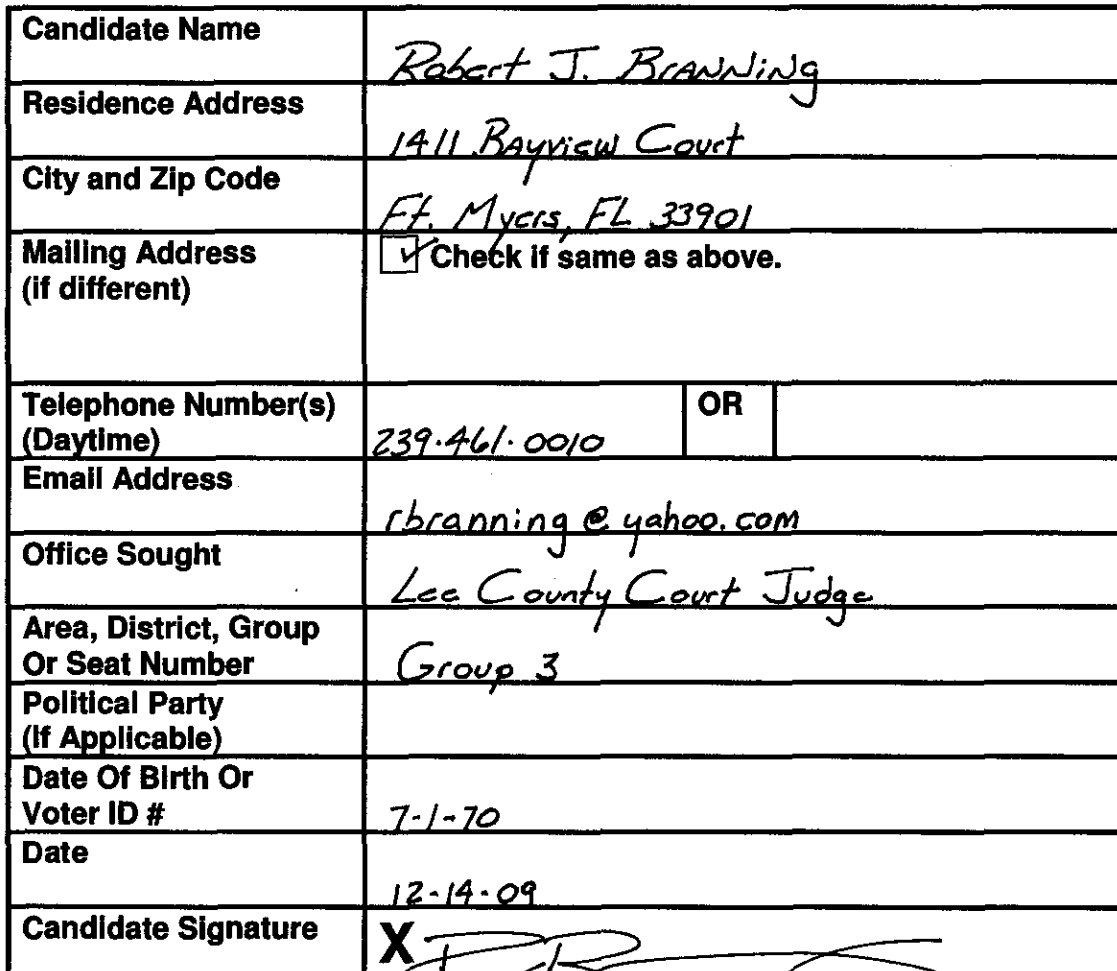 Candidate Name
Robert J. Branning
Residence Address
1411 Bayview Court
City and Zip Code
Ft. Myers, FL 33901
Mailing Address
(if different)
Check if same as above.
Telephone Number(s)
(Daytime)
239.461.0010
OR
Email Address
rbranning@yahoo.com
Office Sought
Lee County Court Judge
Area, District, Group
Or Seat Number
Group 3
Political Party
(If Applicable)
Date Of Birth Or
Voter ID #
7-1-70
Date
12-14-09
Candidate Signature
X